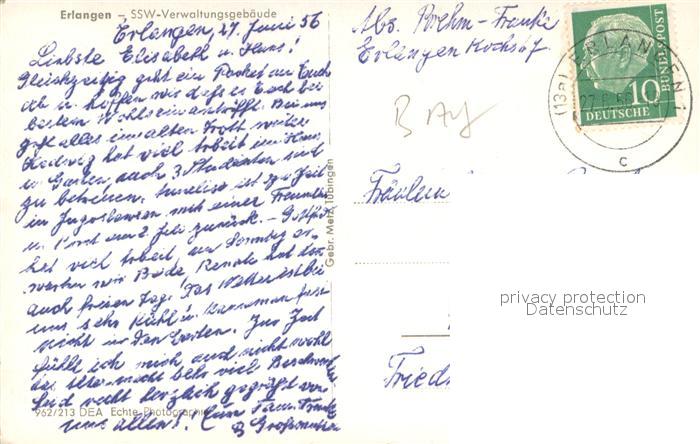 Erlangen – SSW-Verwaltungsgebäude
Erlangen, 27 Juni 56
Liebste Elisabeth u. Hans!
Gleichzeitig geht ein Packet an Euch
ab u. hoffen wir daß es Euch bei
bestem Wohlsein antrifft. Bei uns
geht alles im alten Trott weiter
Hedwig hat viel Arbeit im Haus
u. Garten, auch 3 Studenten sind
zu betreuen. Annelise ist zur Zeit
in Jugoslawien mit einer Freundin
u. kommt am 2. Juli zurück. –
hat viel Arbeit, am Sonntag er-
warten wir Beide, Renate hat da
auch freien Tag! Das Wetter ist bei
uns sehr kühl u. kann man fast
nicht in den Garten. Zur Zeit
fühle ich mich auch nicht wohl
das Alter macht sehr viel Beschwerden
Seid recht herzlich gegrüßt von
uns allen! Eure
Großmutter
962/213 DEA Echte Photographie
Gebr. Metz Tübingen
Abs. Boehm-Franke
Erlangen Kochstr
BAY
DEUTSCHE BUNDESPOST
10
(13a) ERLANGEN 1
27.6.56
c
Fräulein
Fried
privacy protection
Datenschutz